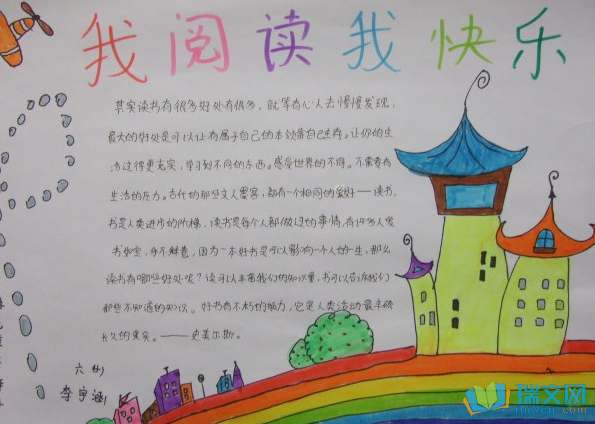 我阅读我快乐
其实读书有很多好处有很多，就等有心人去慢慢发现，
最大的好处是可以让有属于自己的本领靠自己生存。让你的生
活过得更充实，学习到不同的东西。感受世界的不同。不需要有
生活的压力。古代的那些文人墨客，都有一个相同的爱好——读书，
书是人类进步的阶梯，读书是每个人都做过的事情，有许多人爱
书如宝，手不释卷，因为一本好书是可以影响一个人的一生，那么
读书有哪些好处呢？读可以丰富我们的知识量，书可以告诉我们
那些不知道的知识。好书有不朽的能力，它是人类活动最丰硕
长久的果实。——史美尔斯。
六
李宇涵
瑞文网